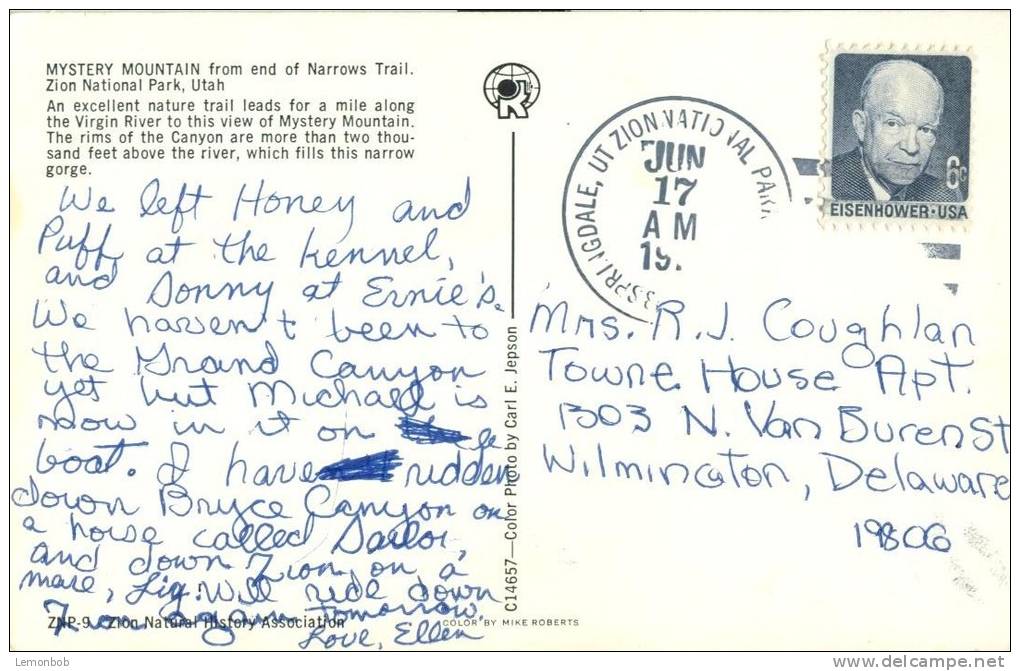 MYSTERY MOUNTAIN from end of Narrows Trail.
Zion National Park, Utah
An excellent nature trail leads for a mile along
the Virgin River to this view of Mystery Mountain.
The rims of the Canyon are more than two thou-
sand feet above the river, which fills this narrow
gorge.
We left Honey and
Puff at the kennel,
and Sonny at Ernie's.
We haven't been to
the Grand Canyon
yet but Michael is
now in it on
boat. I have ridden
down Bryce Canyon on
a horse called Sailor,
and down Zion, on a
mare, Lig. Will ride down
Zion again tomorrow.
Love, Ellen
ZNP-9 Zion Natural History Association
C14657—Color Photo by Carl E. Jepson
COLOR BY MIKE ROBERTS
SPRINGDALE, UT ZION NATIONAL PARK
JUN
17
AM
19
6c
EISENHOWER·USA
Mrs. R.J. Coughlan
Towne House Apt.
1303 N. Van Buren St
Wilmington, Delaware
19806
Lemonbob
© delcampe.net